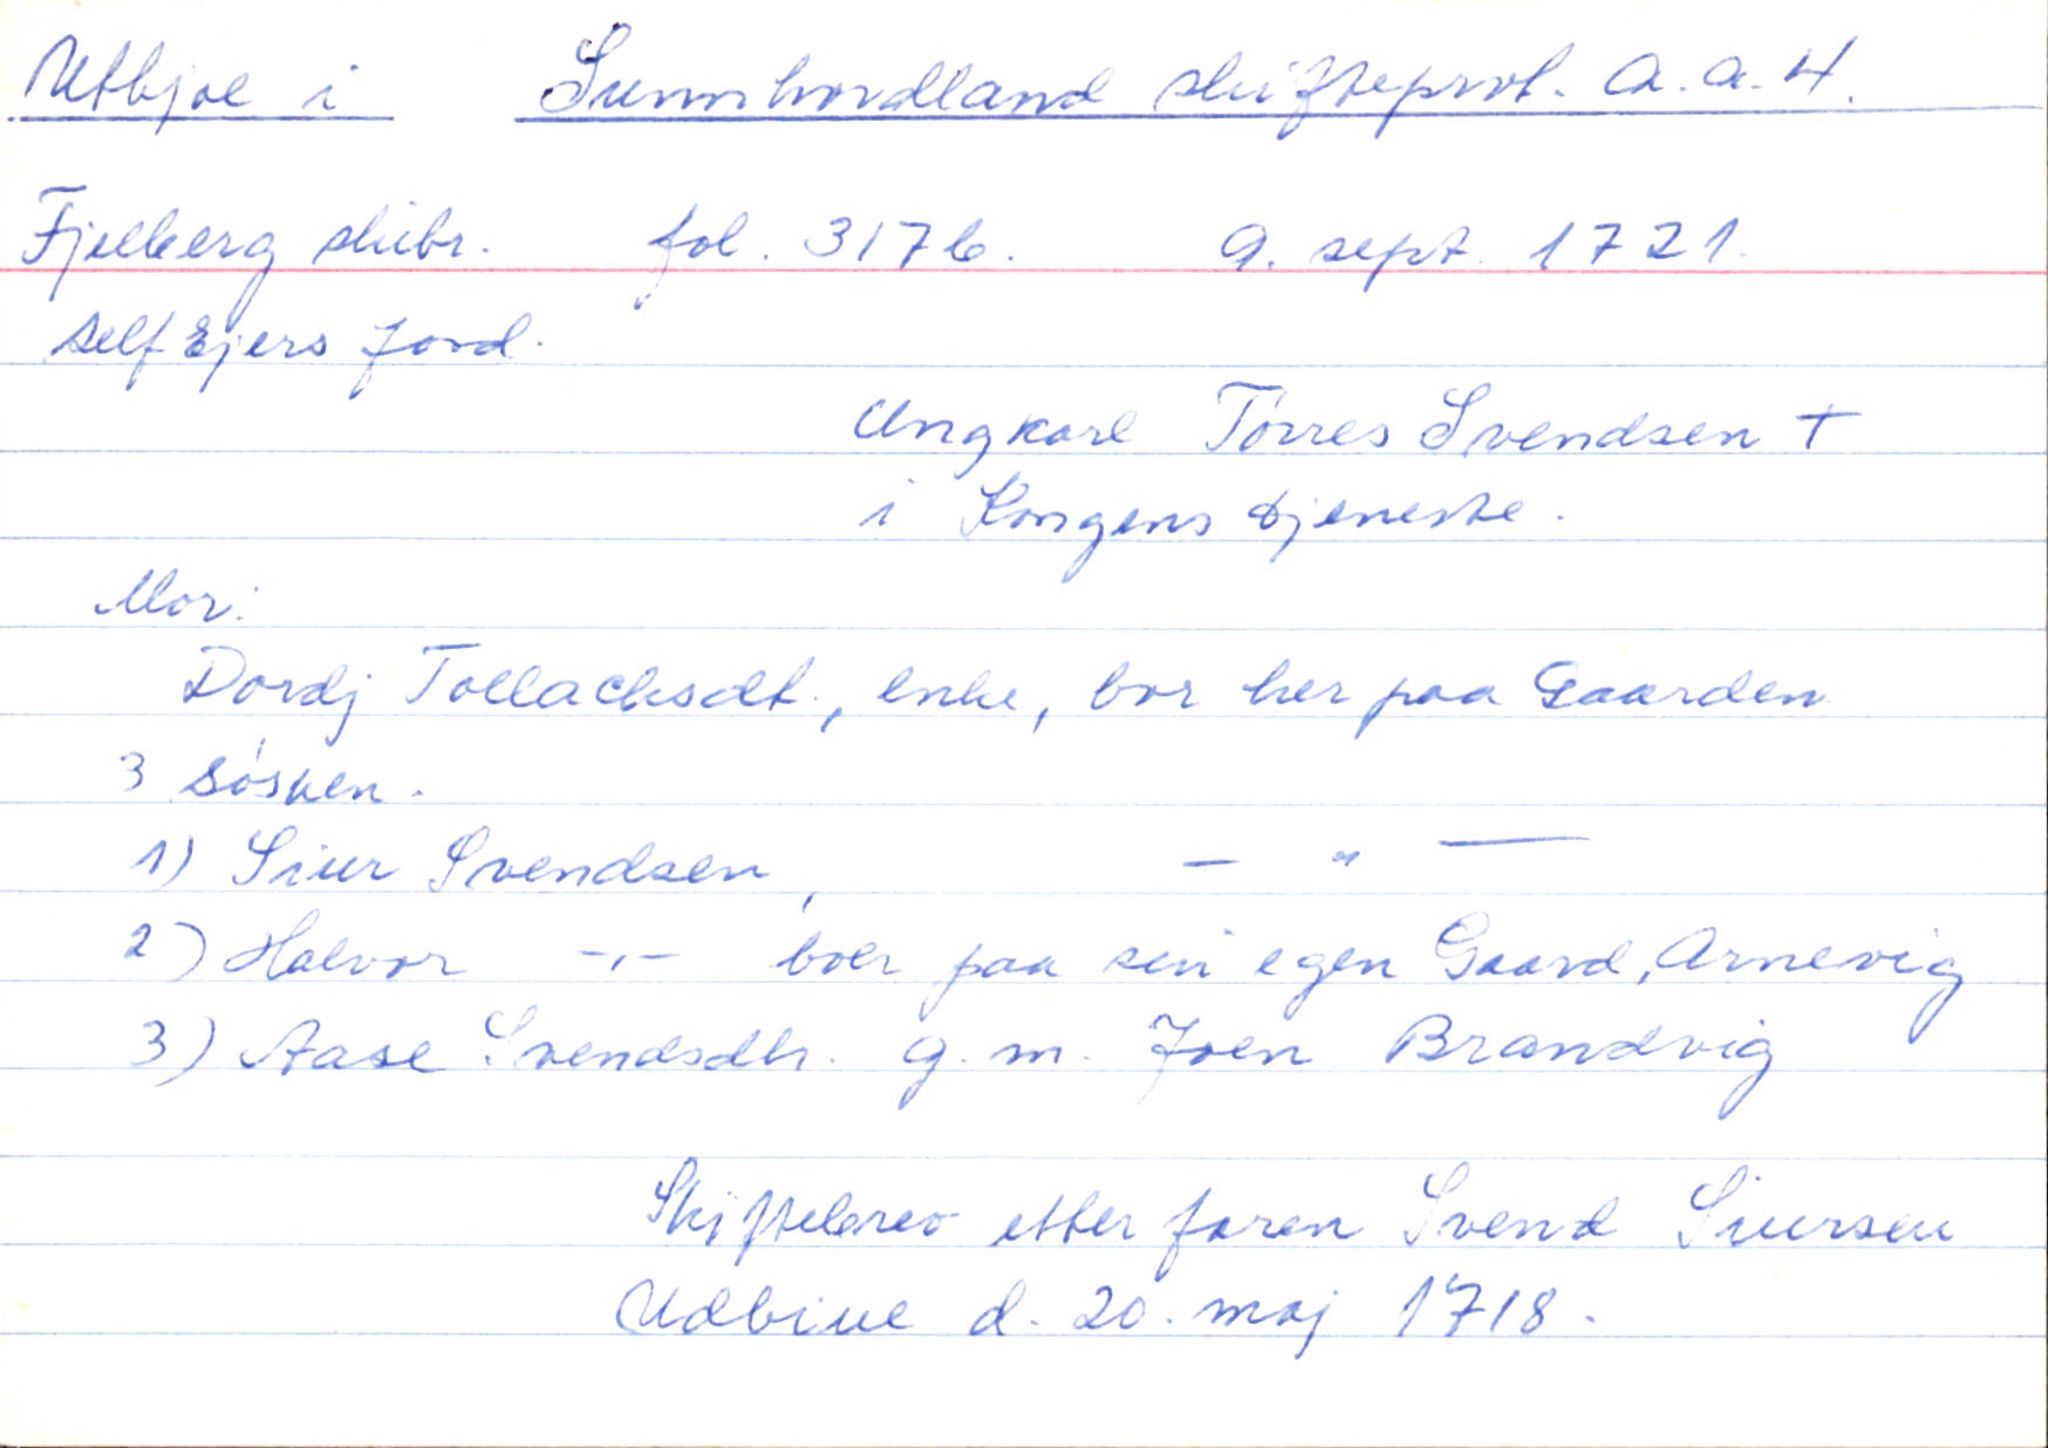 Utbjoe i Sunnhordland skifteprot. A.a.4.
Fjelberg skibr. fol. 317b. 9. sept. 1721.
self Ejers Jord.
Ungkarl Tórres Svendsen †
i Kongens Tjeneste.
Mor:
Dordj Tollachsdt., enke, bor her paa Gaarden
3 Sósken.
1) Siur Svendsen, — " —
2) Halvor -,- boer paa sin egen Gaard, Arnevig
3) Aase Svendsdtr. g. m. Joen Brandvig
Skiftebrev etter faren Svend Siursen
Udbiue d. 20. maj 1718.